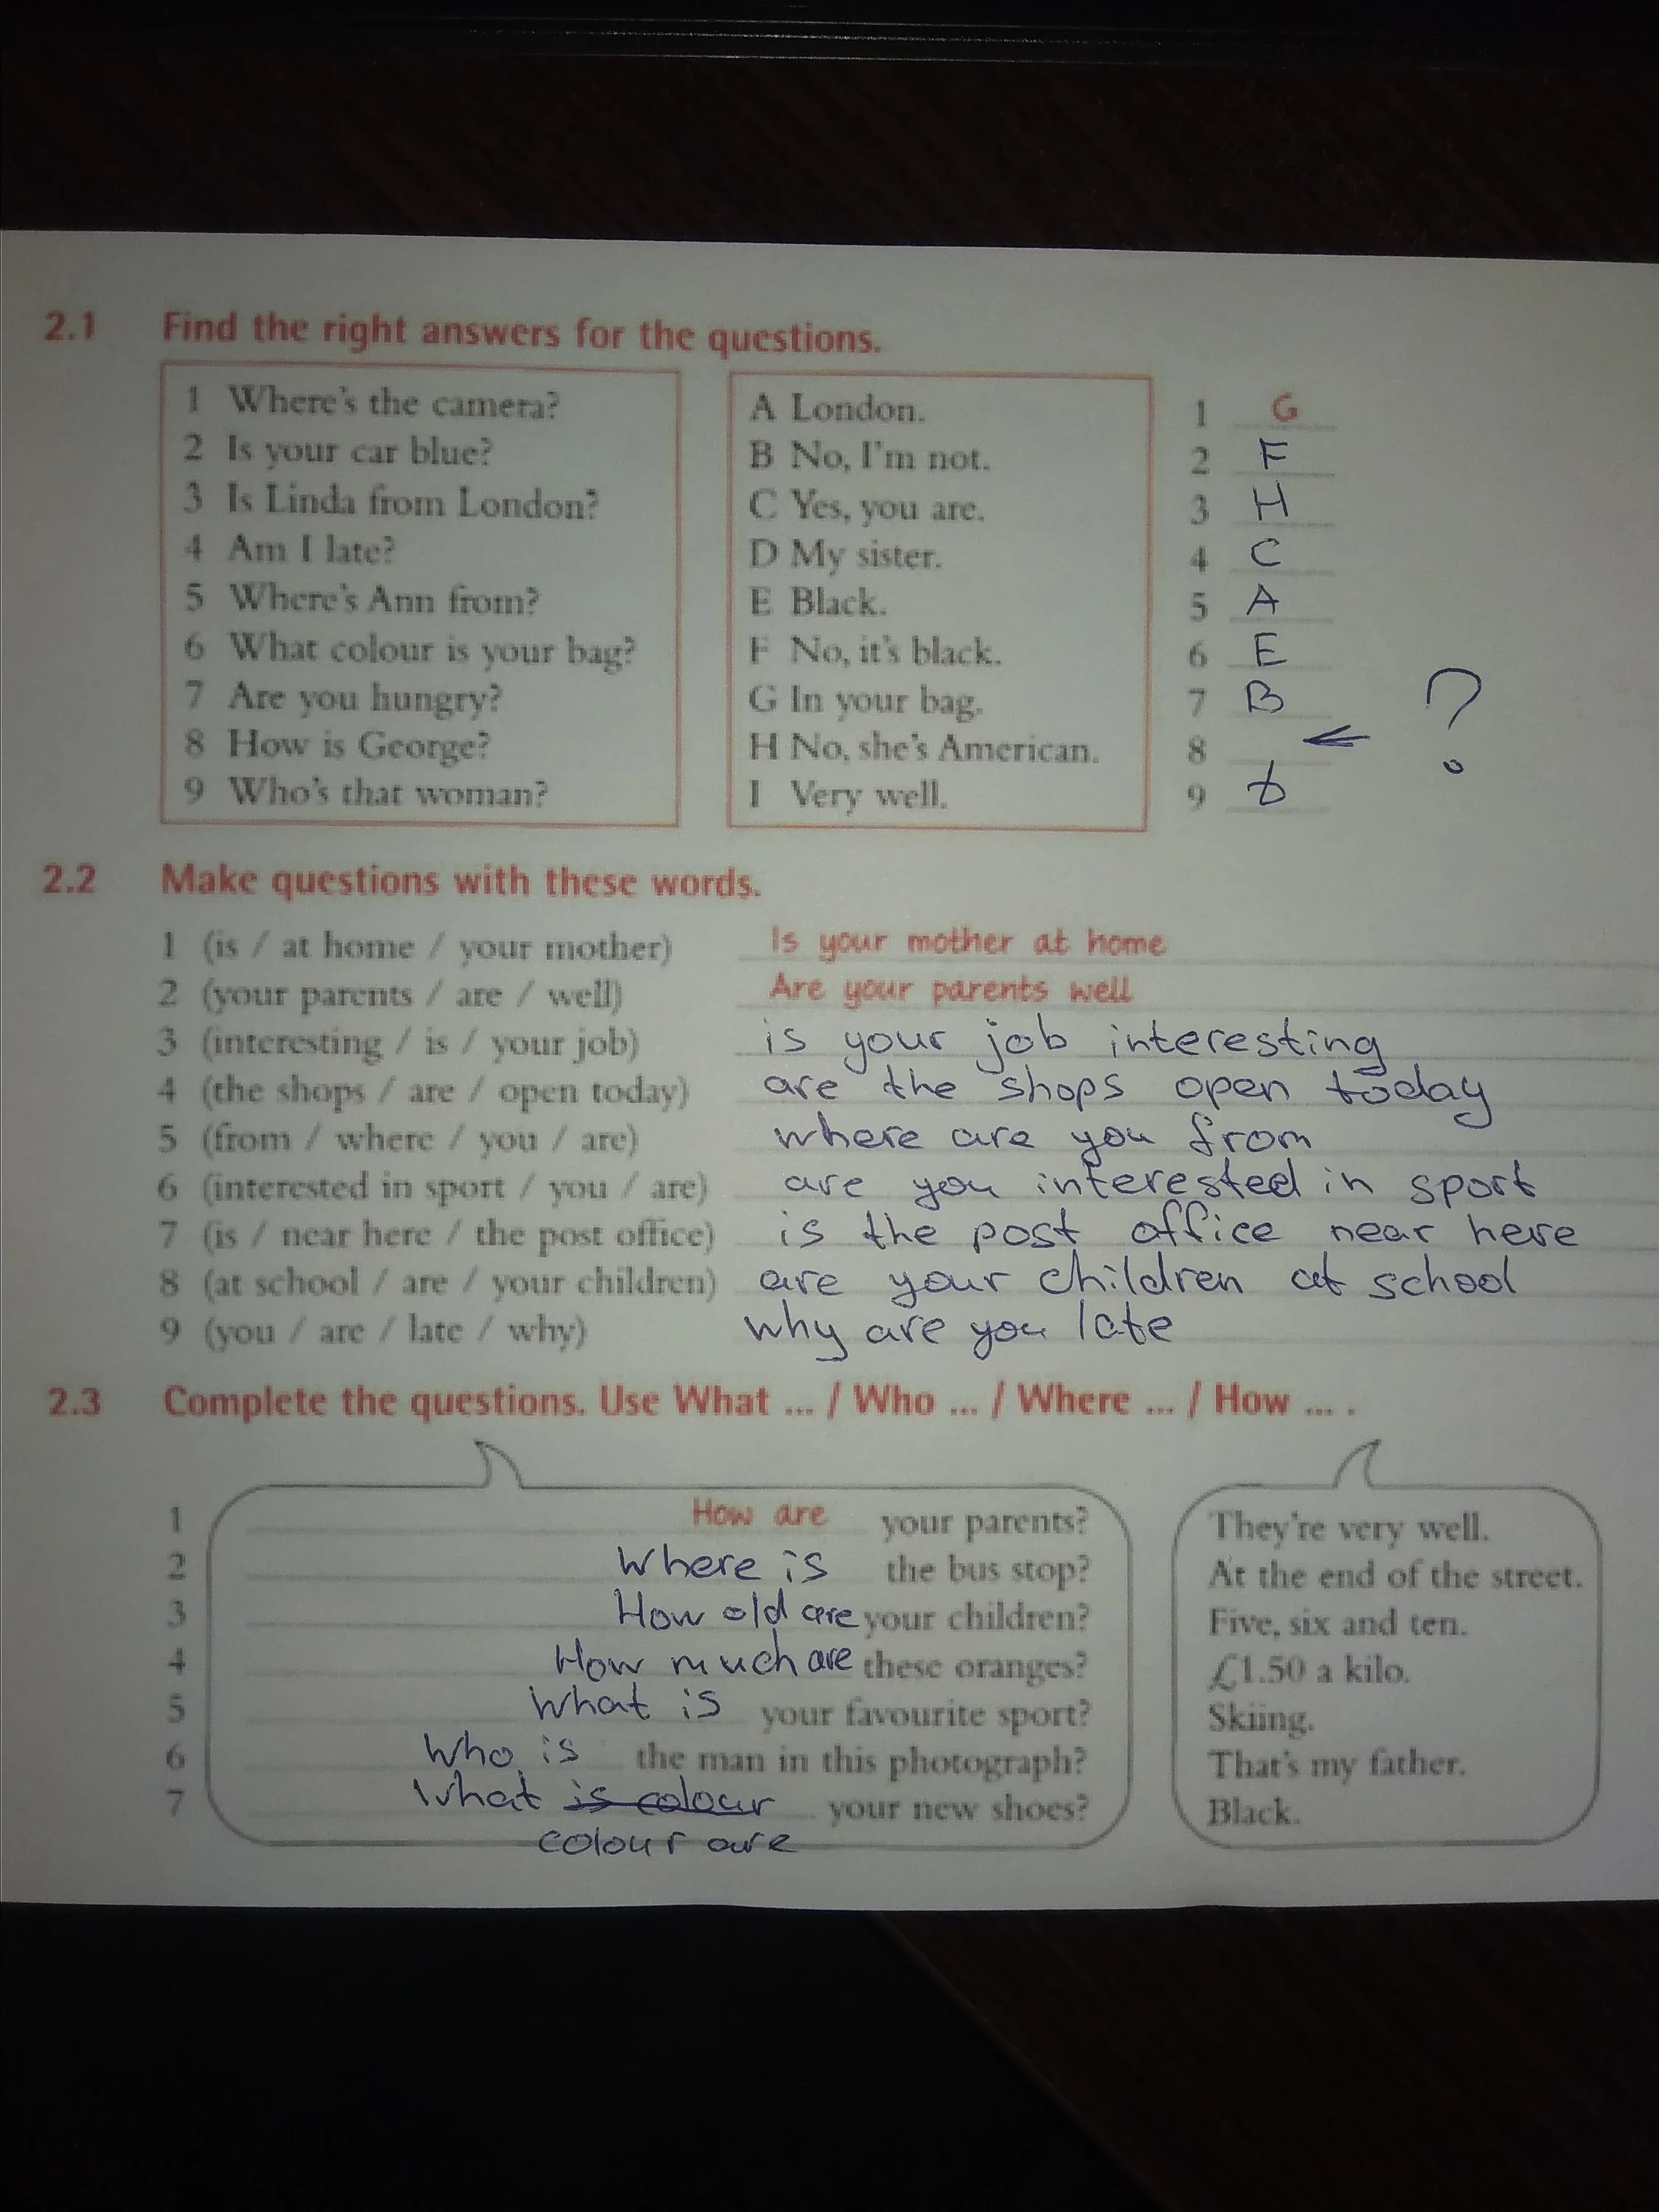 2.1 Find the right answers for the questions.
1 Where's the camera? A London. 1 G
2 Is your car blue? B No, I'm not. 2 F
3 Is Linda from London? C Yes, you are. 3 H
4 Am I late? D My sister. 4 C
5 Where's Ann from? E Black. 5 A
6 What colour is your bag? F No, it's black. 6 E
7 Are you hungry? G In your bag. 7 B
8 How is George? H No, she's American. 8 ← ?
9 Who's that woman? I Very well. 9 D
2.2 Make questions with these words.
1 (is / at home / your mother) Is your mother at home
2 (your parents / are / well) Are your parents well
3 (interesting / is / your job) is your job interesting
4 (the shops / are / open today) are the shops open today
5 (from / where / you / are) where are you from
6 (interested in sport / you / are) are you interested in sport
7 (is / near here / the post office) is the post office near here
8 (at school / are / your children) are your children at school
9 (you / are / late / why) why are you late
2.3 Complete the questions. Use What ... / Who ... / Where ... / How ... .
1 How are your parents? They're very well.
2 Where is the bus stop? At the end of the street.
3 How old are your children? Five, six and ten.
4 How much are these oranges? £1.50 a kilo.
5 What is your favourite sport? Skiing.
6 Who is the man in this photograph? That's my father.
7 What is colour your new shoes? Black.
colour are